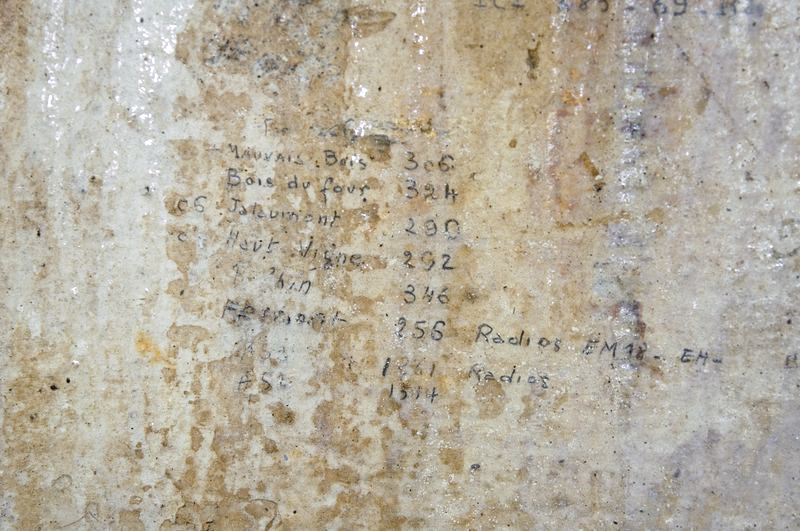 MAUVAIS. Bois 306
Bois du four 324
c6 Jalaumont 290
Haut Vigne 292
346
Fermont 256 Radios EM18- EH-
1861 Radios
A52 1514